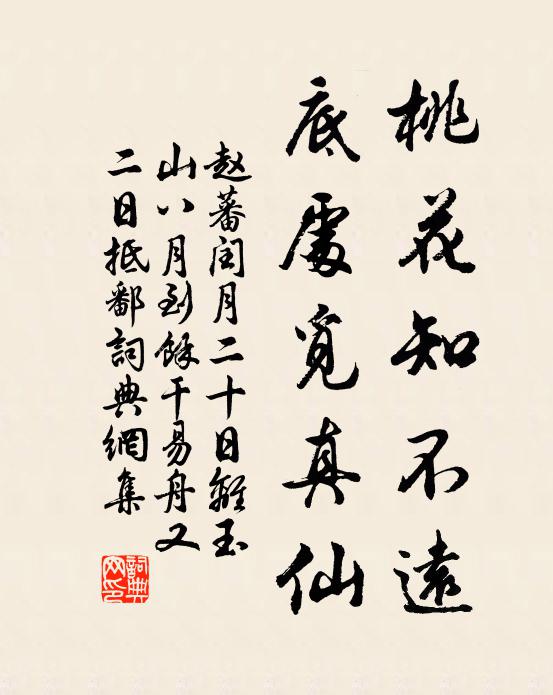 桃花知不遠
底處覓真仙
赵蕃闰月二十日離玉
山八月到餘干易舟又
二日抵鄱詞典網集
詞典
网印